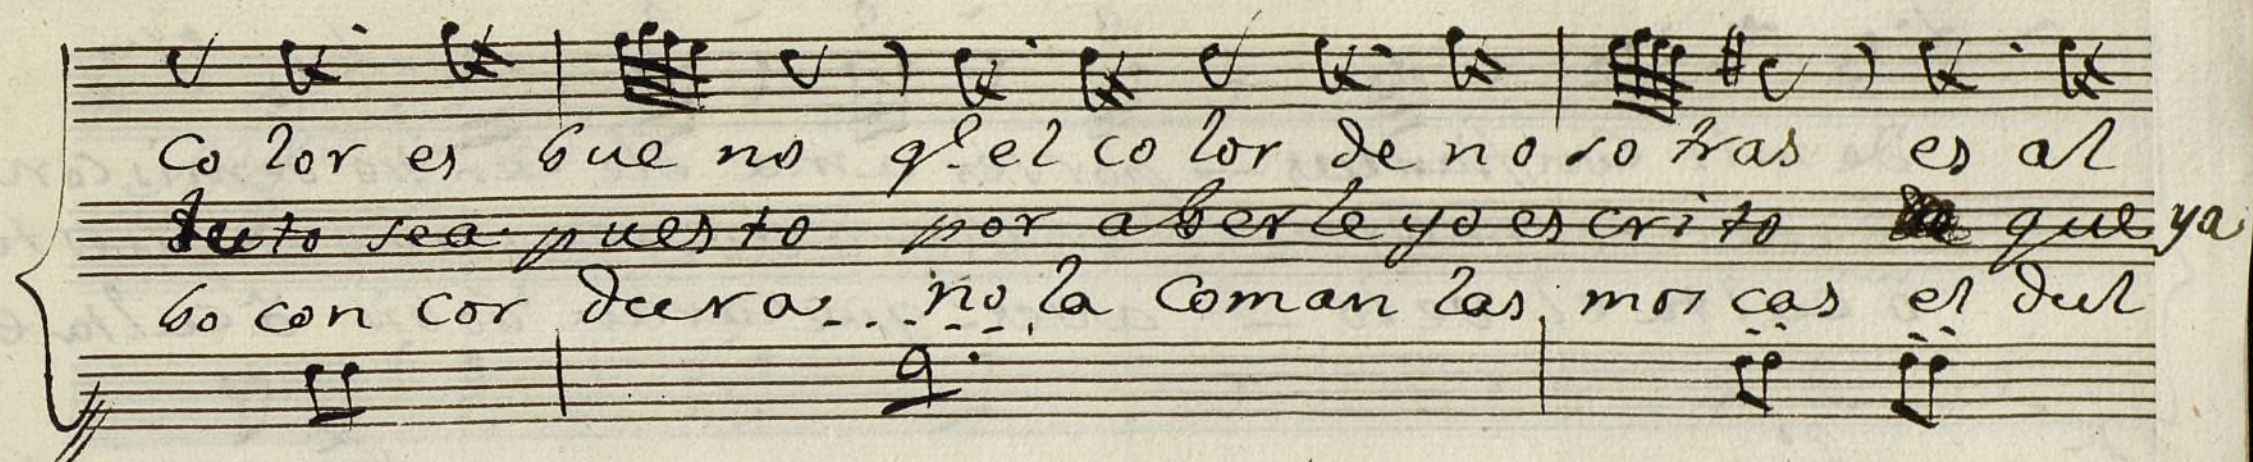 Co lor es bue no q.e el co lor de no so tras es al
tuto sea puesto por aberle yo es cri to que ya
bo con cor dura no la coman las mos cas el dul